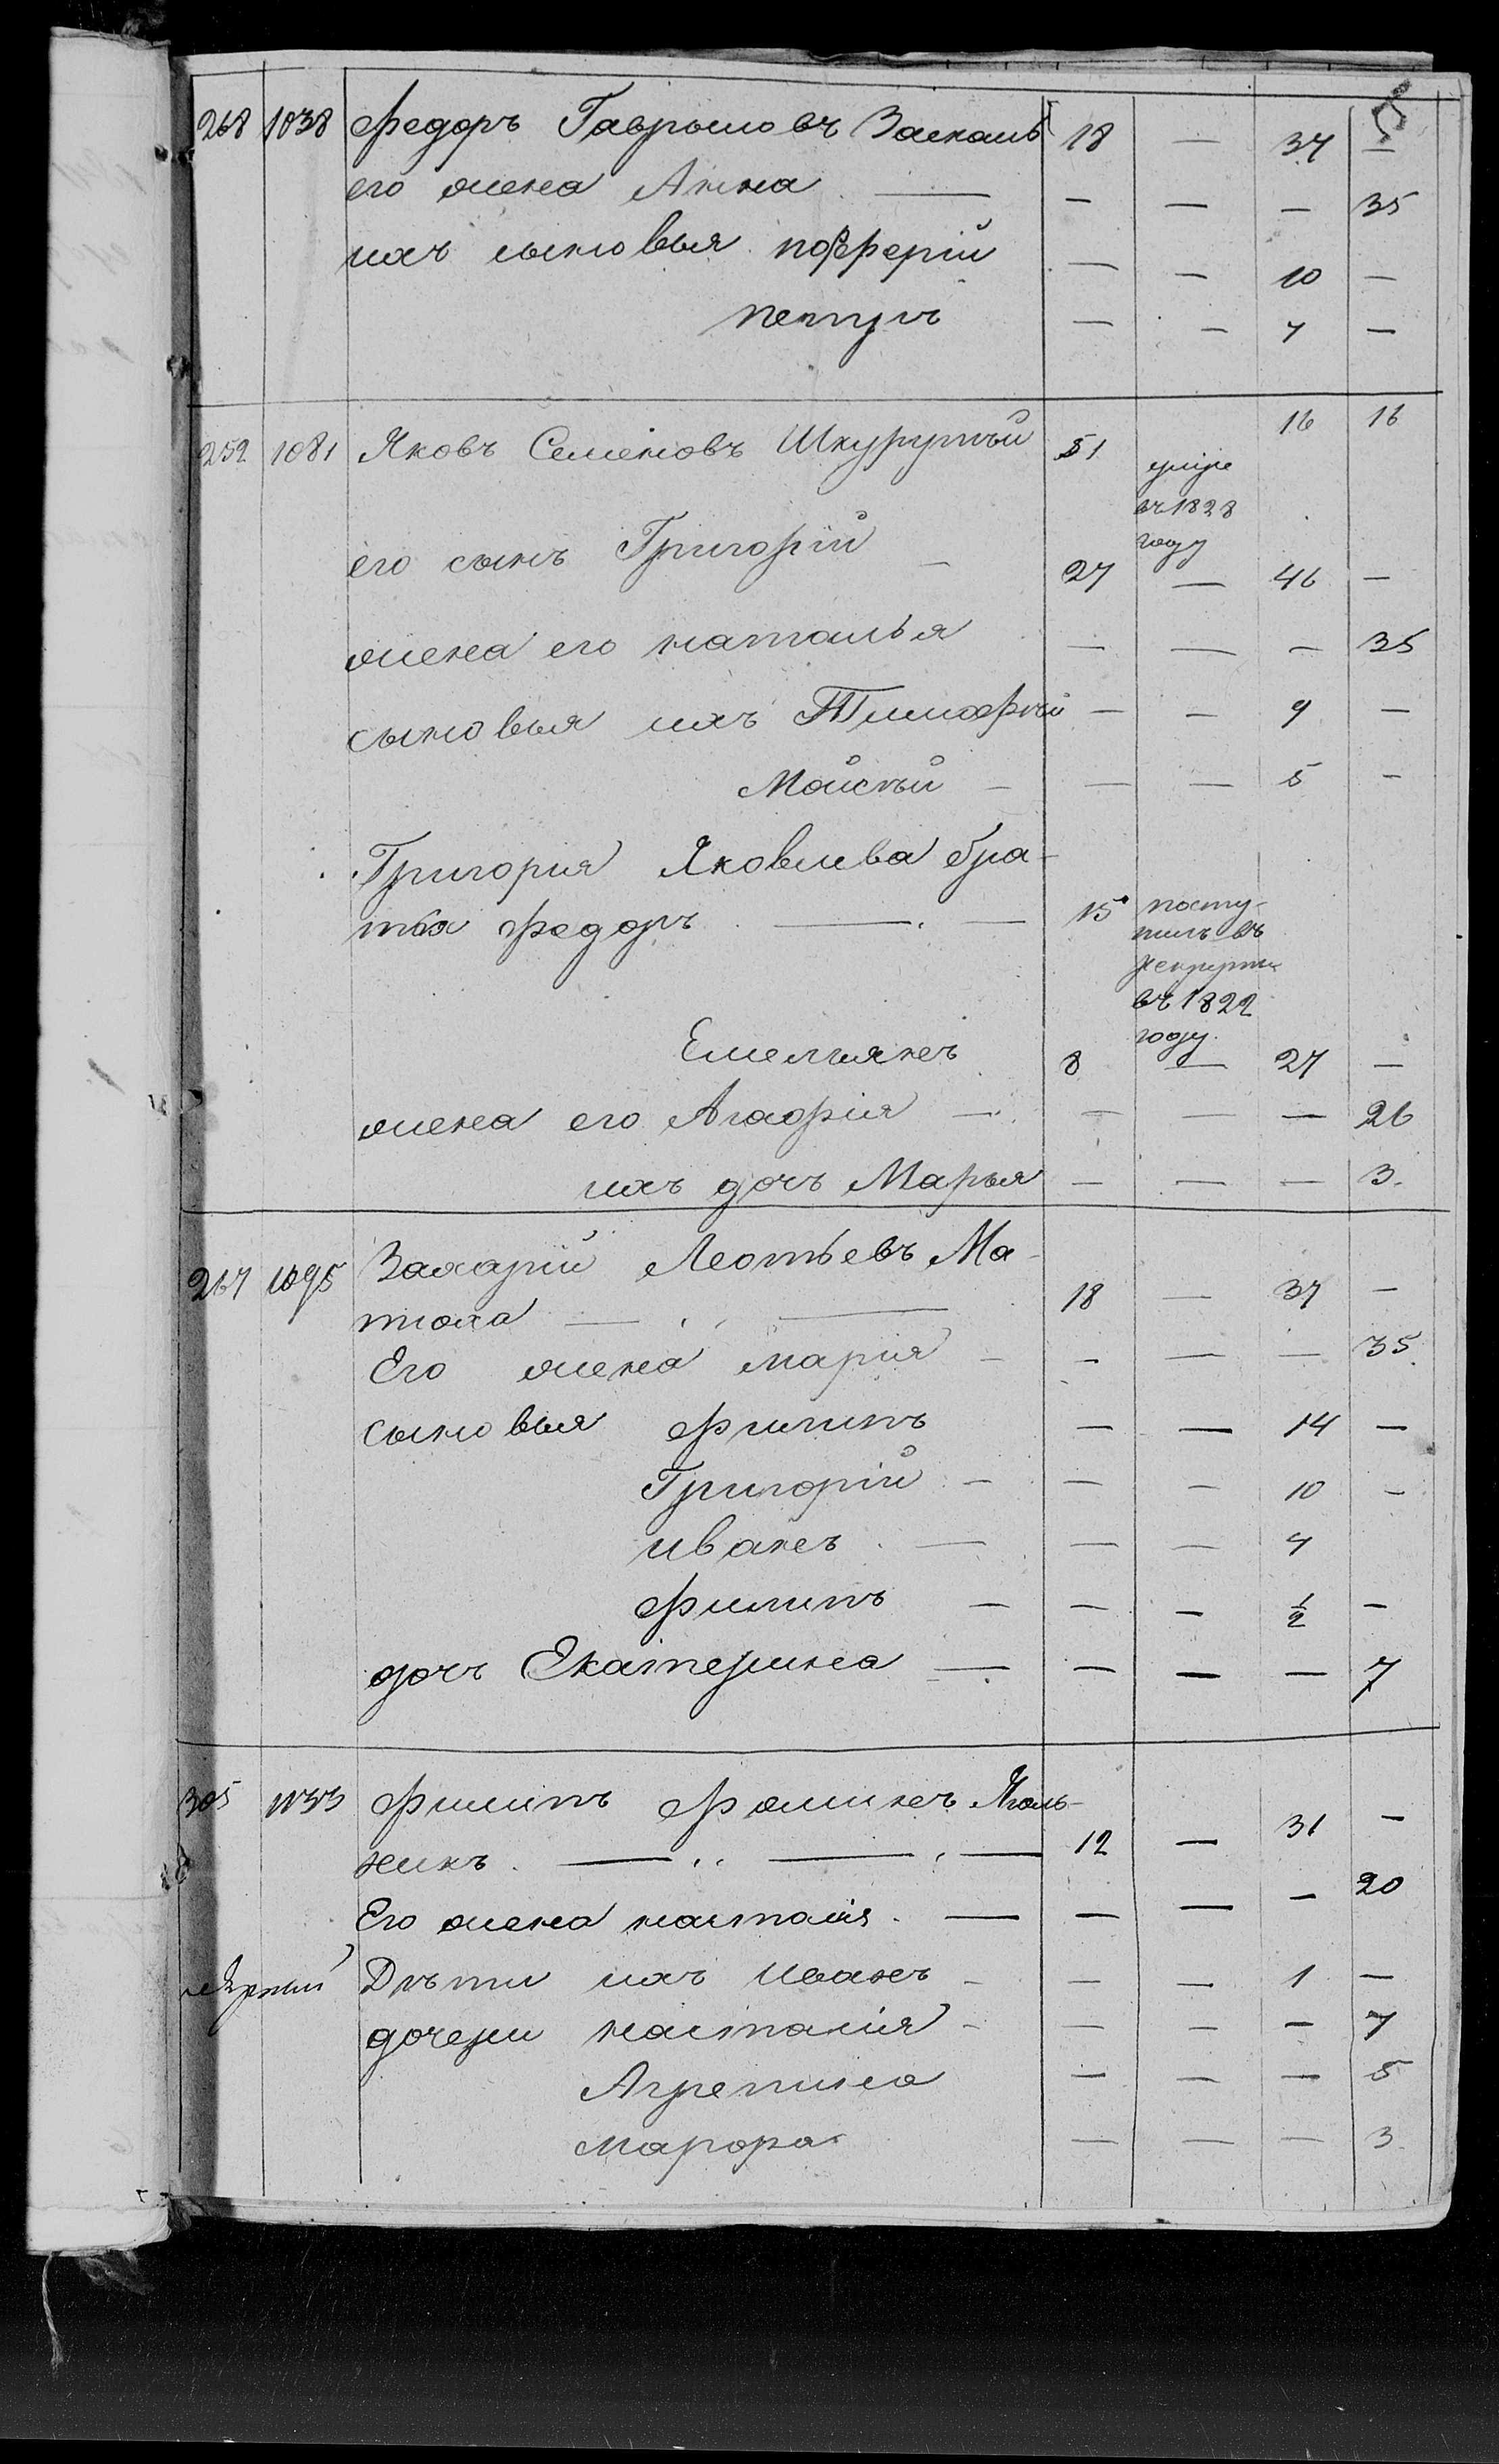 268 1038 Федоръ Гавриловъ Заскаль 18 — 37 —
его жена Анна — — — — 35
ихъ сыновья порферій — — 10 —
петръ — — 7 —
16 16
252 1081 Яковъ Семеновъ Шкурупѣй 51 умре
въ 1828
году
его сынъ Григорій — 27 — 46 —
жена его наталья — — — 35
сыновья ихъ Тимофѣй — — 9 —
Мойсѣй — — — 5 —
Григорія Яковлева бра-
тья федоръ — — 15 посту-
пилъ въ
рекруты
въ 1822
году.
Емельянъ 8 — 27 —
жена его Агафія — — — — 26
ихъ дочь Марья — — — 3.
267 1095 Захарій Леотьевъ Ма-
тюха — — 18 — 37 —
Его жена марія — — — — 35
сыновья филипъ — — 14 —
Григорій — — — 10 —
иванъ — — — 4
филипъ — — — 1/2 —
дочь Екатерина — — — — 7
305 1133 филипъ фоминъ
никъ — — — 12 — 31 —
Его жена настасія — — — — 20
Дѣти ихъ Иванъ — — — 1 —
дочери настасія — — — — 7
Агрепина — — — 5
марфа — — — 3